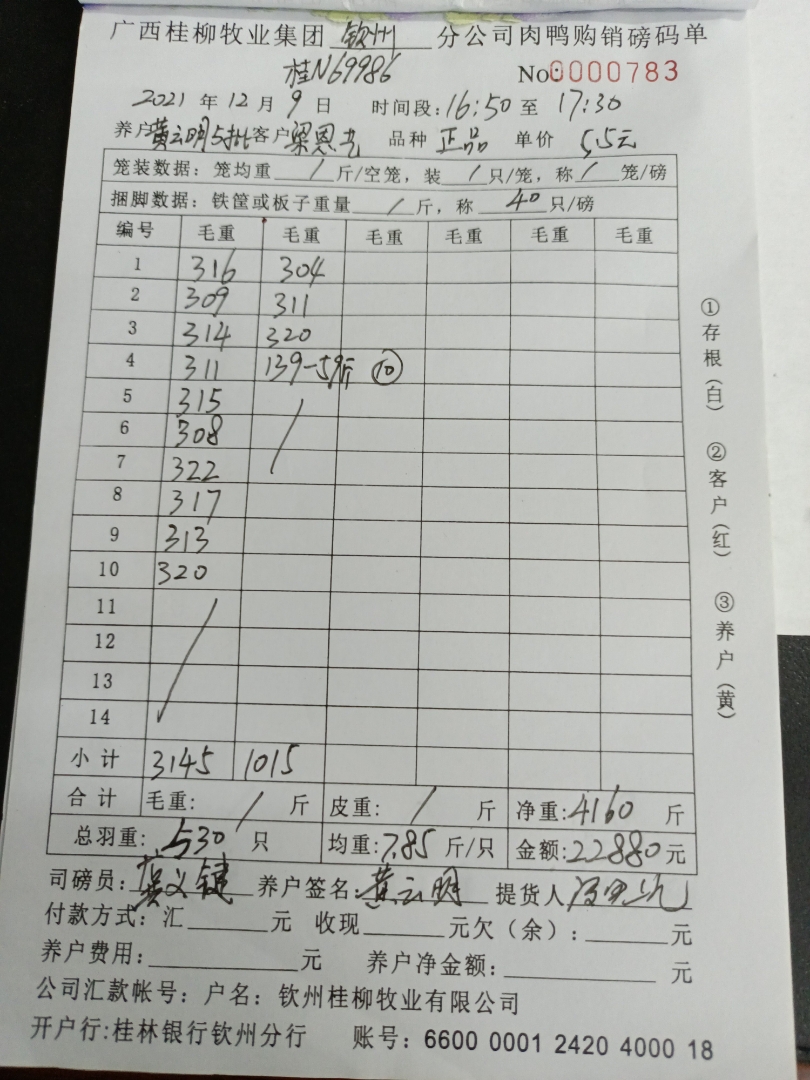 广西桂柳牧业集团 钦州 分公司肉鸭购销磅码单
桂N69986 No:0000783
2021 年 12 月 9 日 时间段:16:50 至 17:30
养户黄云明5批客户梁恩 品种 正品 单价 5.5元
笼装数据:笼均重 / 斤/空笼,装 / 只/笼,称 / 笼/磅
捆脚数据:铁筐或板子重量 / 斤,称 40 只/磅
编号 毛重 毛重 毛重 毛重 毛重 毛重
1 316 304
2 309 311
3 314 320
4 311 139-59斤 ⑩
5 315
6 308
7 322
8 317
9 313
10 320
11
12
13
14
小计 3145 1015
合计 毛重: / 斤 皮重: / 斤 净重:4160 斤
总羽重: 530 只 均重:7.85 斤/只 金额:22880元
司磅员: 键 养户签名:黄云明 提货人
付款方式:汇 元 收现 元欠(余): 元
养户费用: 元 养户净金额: 元
公司汇款帐号:户名:钦州桂柳牧业有限公司
开户行:桂林银行钦州分行 账号:6600 0001 2420 4000 18
①存根(白) ②客户(红) ③养户(黄)